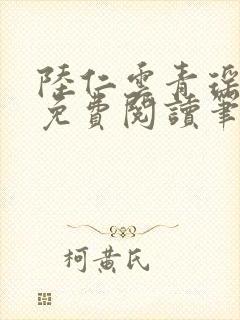 陸仁雲青瑤
免費閱讀筆
柯黃氏